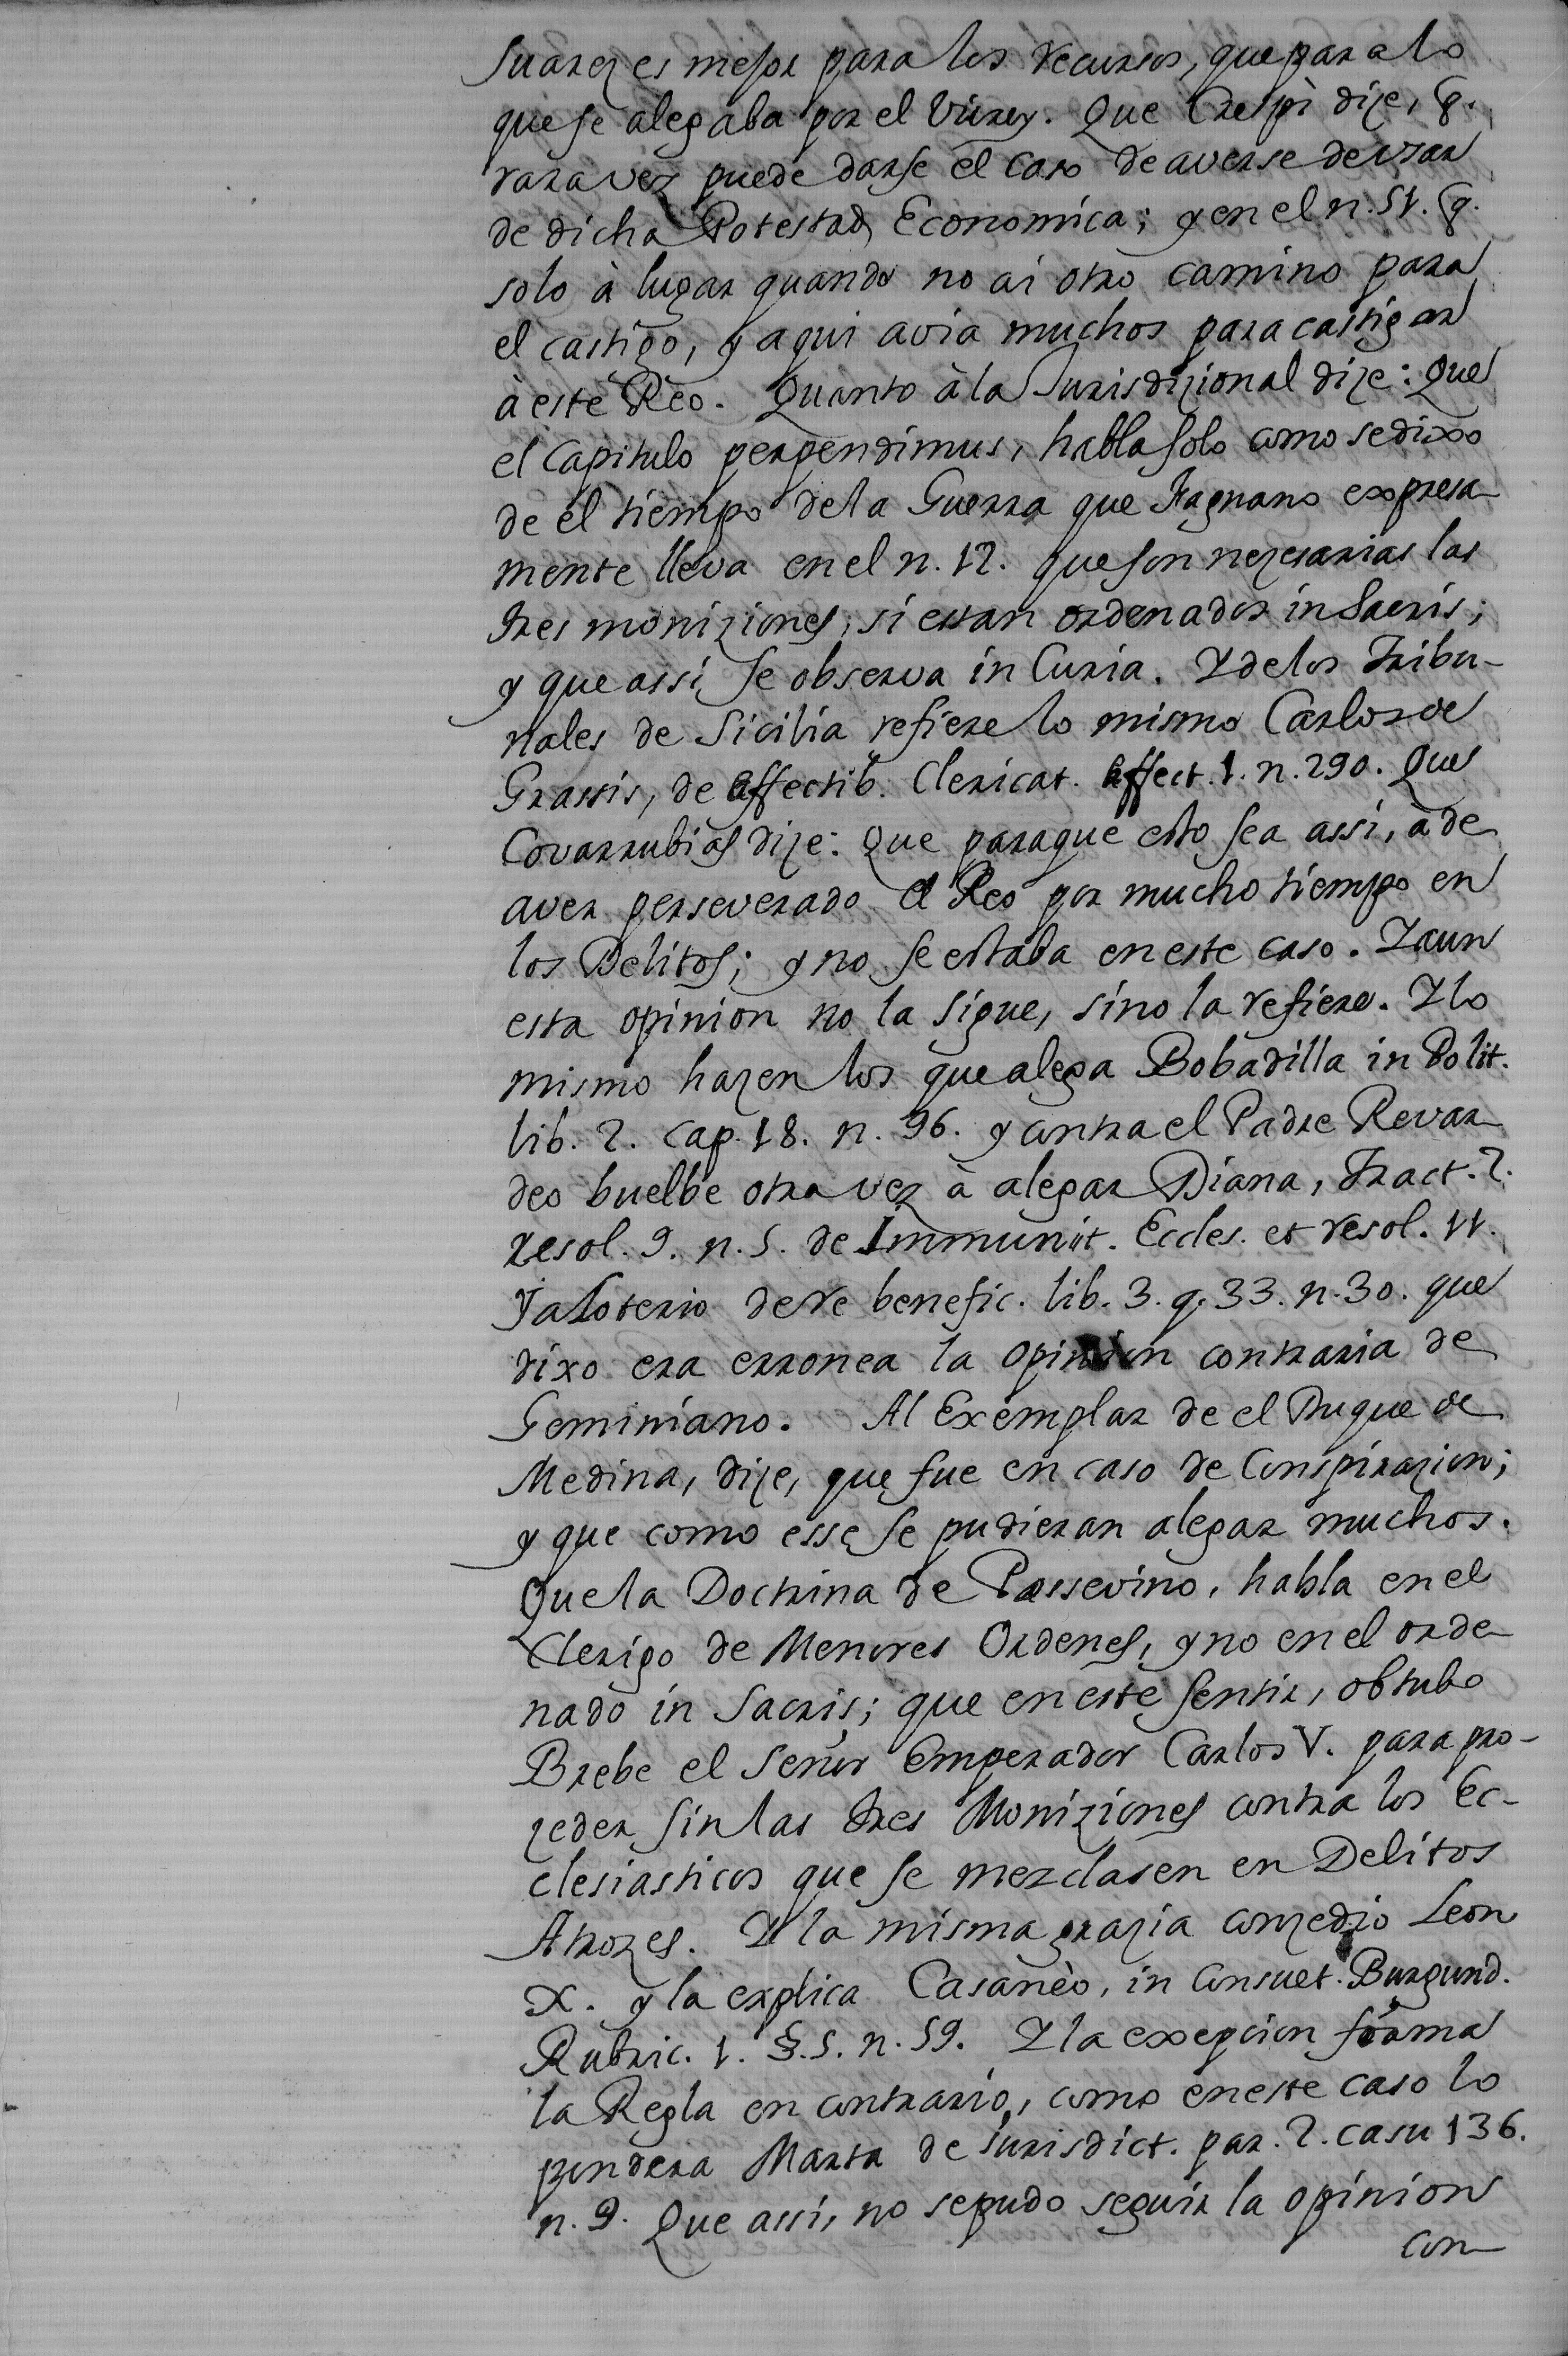 Suarez es mejor para los recursos, que para lo
que se alegaba por el Virrey. Que Crespi dize, q.
rara vez puede darse el caso de averse de usar
de dicha Potestad Economica; y en el n. 51. q.
solo à lugar quando no ai otro camino para
el castigo, y aqui avia muchos para castigar
à este Reo. Quanto à la Jurisdizional dize: Que
el Capitulo perpendimus, habla solo como se dixo
de el tiempo de la Guerra que Fagnano expresa-
mente lleva en el n. 12. que son nezesarias las
tres moniziones, si estan ordenados in Sacris;
y que assi se observa in Curia. Y de los Tribu-
nales de Sicilia refiere lo mismo Carlos de
Grassis, de Effectib. Clericat. Effect. 1. n. 290. Que
Covarrubias dize: Que para que esto sea assi, à de
aver perseverado el Reo por mucho tiempo en
los Delitos; y no se estaba en este caso. Y aun
esta opinion no la sigue, sino la refiere. Y lo
mismo hazen los que alega Bobadilla in Polit.
lib. 2. cap. 18. n. 96. y contra el Padre Revar-
deo buelbe otra vez à alegar Diana, Tract. 2.
resol. 9. n. 5. de Immunit. Eccles. et resol. 11.
Y a Loterio de re benefic. lib. 3. q. 33. n. 30. que
dixo era erronea la opinion contraria de
Geminiano. Al Exemplar de el Duque de
Medina, dize, que fue en caso de Conspirazion;
y que como esse se pudieran alegar muchos.
Que la Doctrina de Possevino, habla en el
Clerigo de Menores Ordenes, y no en el orde-
nado in Sacris; que en este sentir, obtubo
Brebe el Señor Emperador Carlos V. para pro-
zeder sin las tres Moniziones contra los Ec-
clesiasticos que se mezclasen en Delitos
Atrozes. Y la misma grazia conzedio Leon
X. y la explica Casanèo, in Consuet. Burgund.
Rubric. 1. §. 5. n. 59. Y la exepcion forma
la Regla en contrario, como en este caso lo
pondera Marta de Jurisdict. par. 2. casu 136.
n. 9. Que assi, no se pudo seguir la opinion
con-